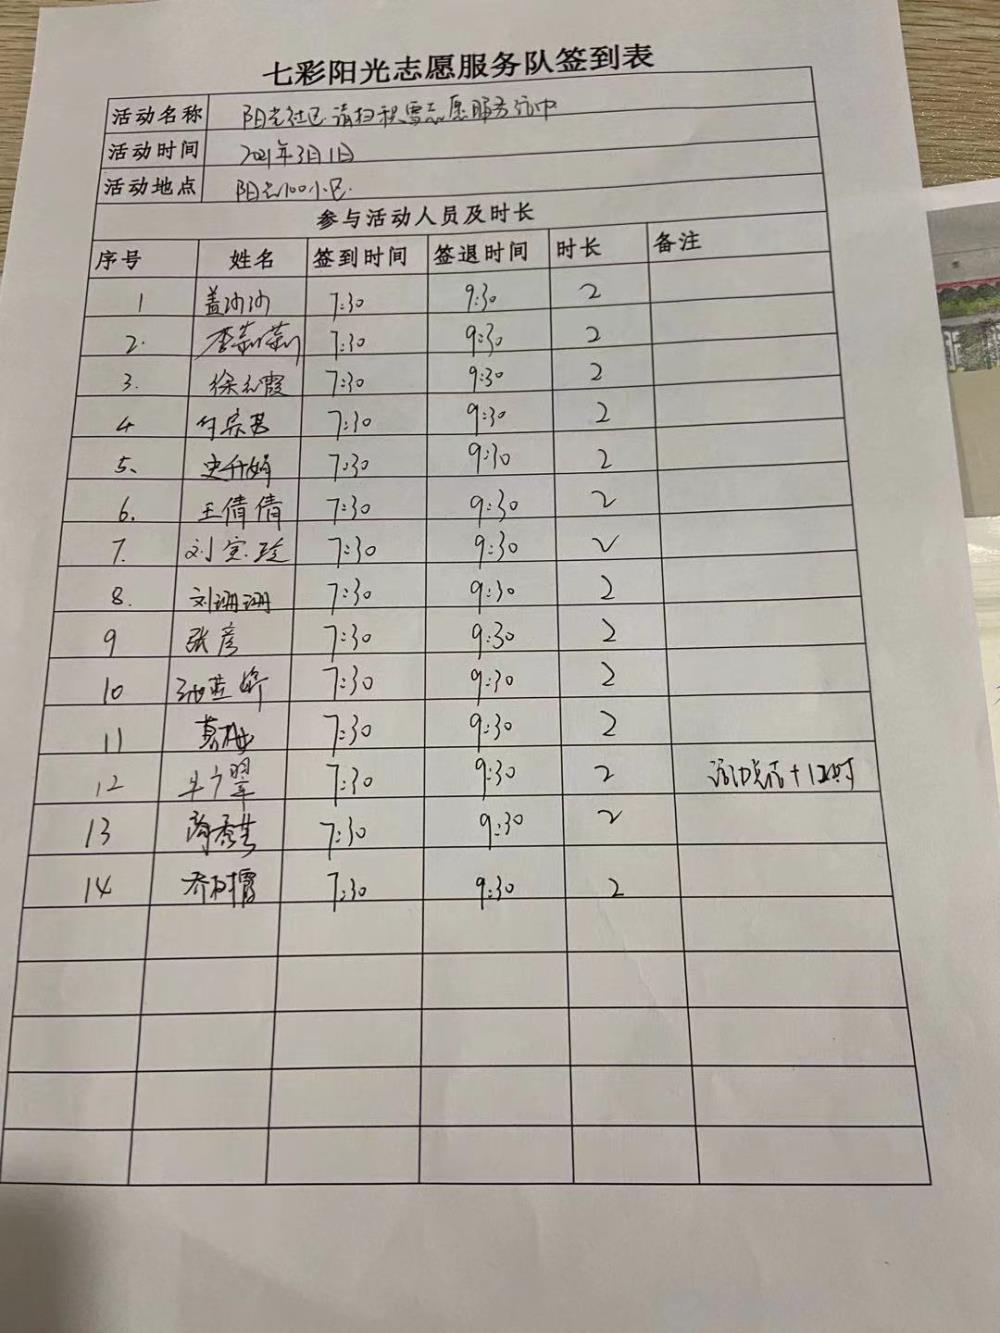 七彩阳光志愿服务队签到表
活动名称 阳光社区请扫积雪志愿服务活动
活动时间 2021年3月1日
活动地点 阳光100小区.
参与活动人员及时长
序号 姓名 签到时间 签退时间 时长 备注
1 盖沙沙 7:30 9:30 2
2. 李莉莉 7:30 9:30 2
3. 徐志霞 7:30 9:30 2
4 付宗君 7:30 9:30 2
5、 史升娟 7:30 9:30 2
6. 王倩倩 7:30 9:30 2
7. 刘宝玲 7:30 9:30 2
8. 刘珊珊 7:30 9:30 2
9 张彦 7:30 9:30 2
10 7:30 9:30 2
11 葛梅 7:30 9:30 2
12 牛广翠 7:30 9:30 2 +1小时
13 7:30 9:30 2
14 7:30 9:30 2